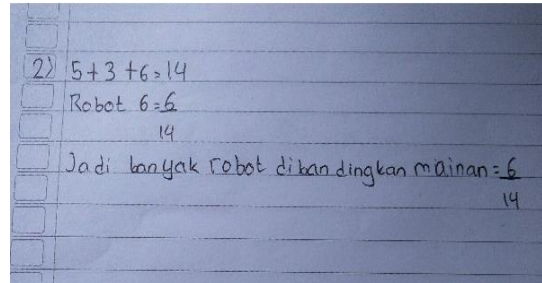 2) 5+3+6=14
Robot 6=6/14
Jadi banyak robot dibandingkan mainan=6/14